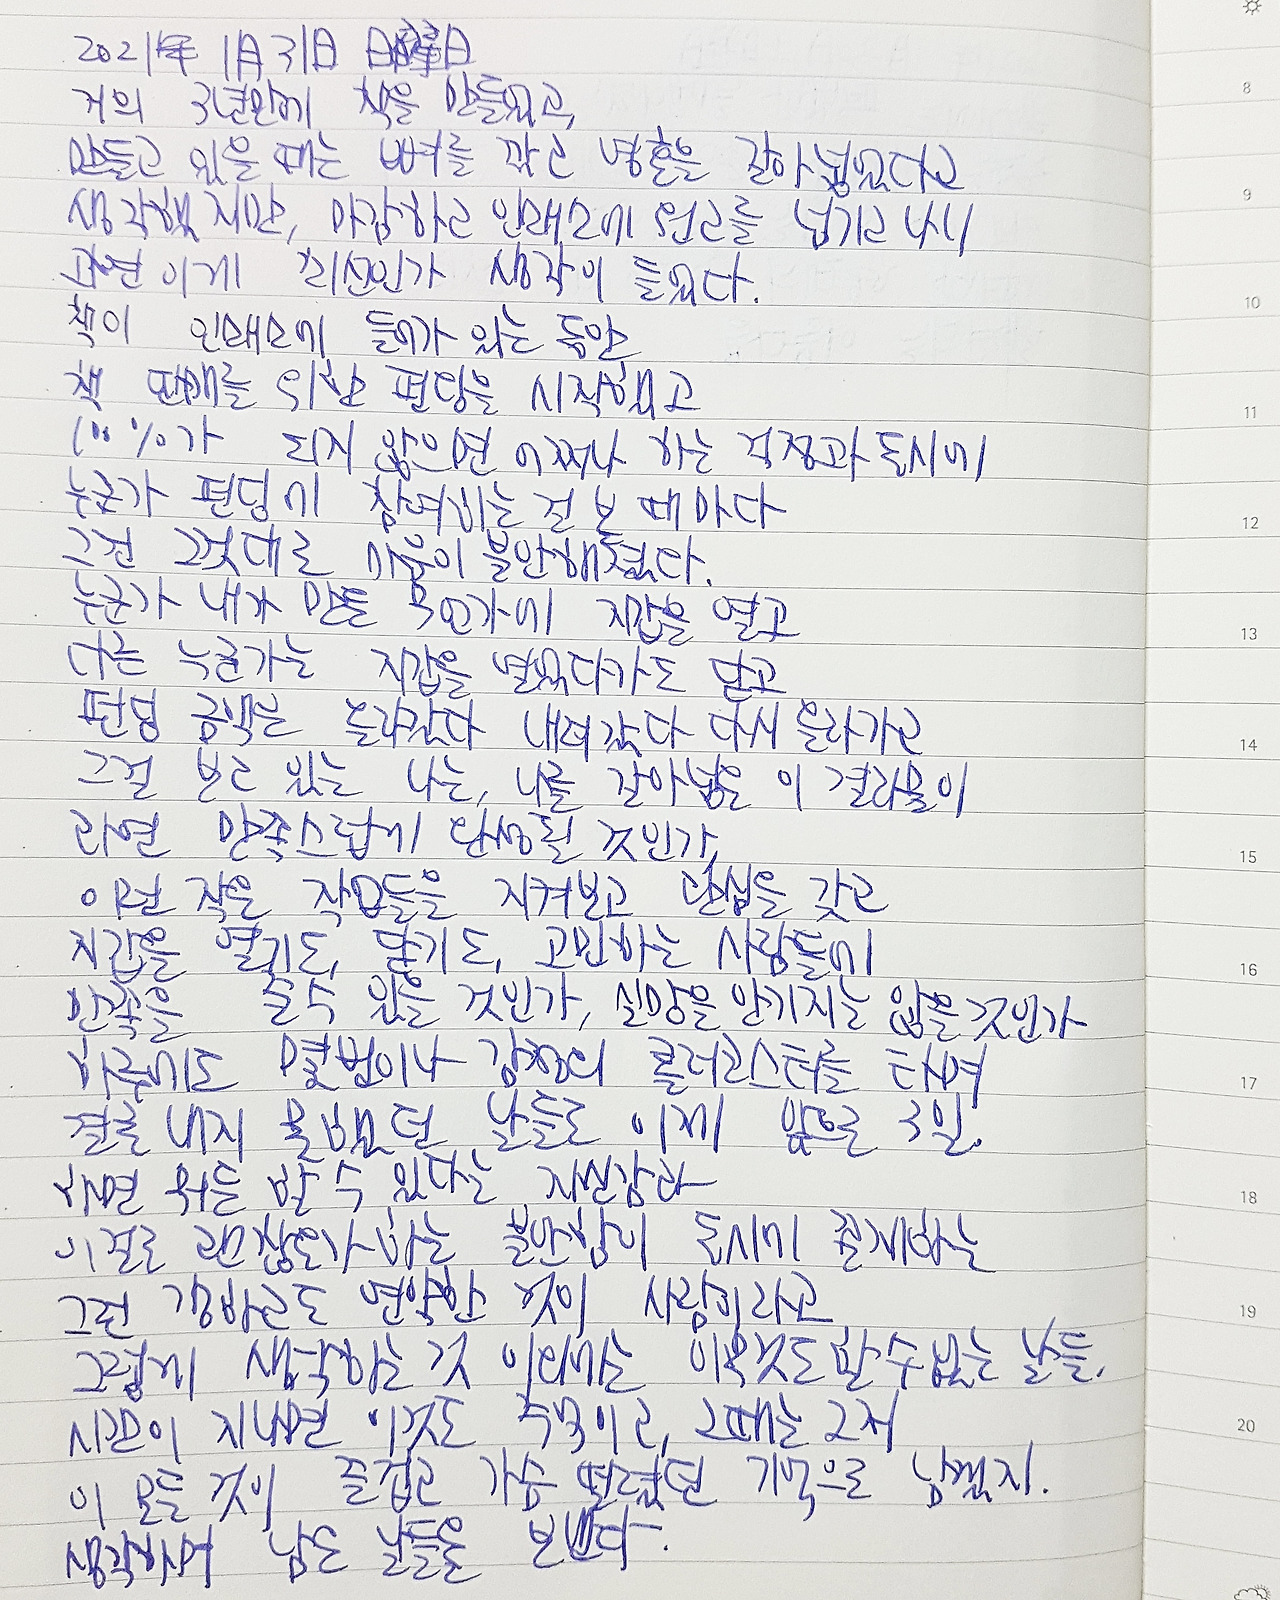 2021年 1月 31日 日曜日
거의 3년만에 책을 만들었고,
만들고 있을 때는 뼈를 깎고 영혼을 갈아넣었다고
생각했지만, 마감하고 인쇄소에 원고를 넘기고 나니
과연 이게 최선인가 생각이 들었다.
책이 인쇄소에 들어가 있는 동안
책 판매를 위한 펀딩을 시작했고
100%가 되지 않으면 어쩌나 하는 걱정과 동시에
누군가 펀딩에 참여하는 걸 볼 때마다
그건 그것대로 마음이 불안해졌다.
누군가 내가 만든 무언가에 지갑을 열고
다른 누군가는 지갑을 열었다가도 닫고
펀딩 금액은 올라갔다 내려갔다 다시 올라가고
그걸 보고 있는 나는, 나를 갈아넣은 이 결과물이
과연 만족스럽게 탄생될 것인가,
이런 작은 작업들을 지켜보고 관심을 갖고
지갑을 열기도, 닫기도, 고민하는 사람들에
만족을 줄 수 있을 것인가, 실망을 안기지는 않을 것인가
하루에도 몇번이나 감정의 롤러코스터를 타며
결론 내지 못했던 날들도 이제 앞으로 3일.
하면 뭐든 할 수 있다는 자신감과
이걸로 괜찮은가 하는 불안함이 동시에 존재하는
그런 강하고도 연약한 것이 사람이라고
그렇게 생각하는 것 이외에는 아무것도 할 수 없는 날들.
시간이 지나면 이것도 추억이고, 그때는 그저
이 모든 것이 즐겁고 가슴 떨렸던 기억으로 남겠지.
생각하며 남은 날들을 보낸다.
8
9
10
11
12
13
14
15
16
17
18
19
20